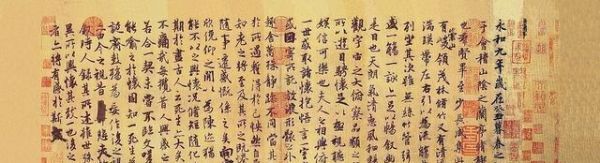 永和九年歲在癸丑暮春之
于會稽山陰之蘭亭脩稧
也群賢畢至少長咸集此
有崇山峻領茂林脩竹又有清流
湍暎帶左右引以為流觴
列坐其次雖無絲竹管
盛一觴一詠亦足以暢敘幽
是日也天朗氣清惠風和暢
觀宇宙之大俯察品類之
所以遊目騁懷足以極視聽
娛信可樂也夫人之相與俯
一世或取諸懷抱悟言一室
或因寄所託放浪形骸之
趣舍萬殊靜躁不同當其
於所遇蹔得於己怏然自足
知老之將至及其所之既惓
隨事遷感慨係之矣向之
欣俛仰之間以為陳迹猶
能不以之興懷況脩短隨化
期於盡古人云死生亦大矣
不痛哉每攬昔人興感之
若合一契未嘗不臨文嗟悼
能喻之於懷固知一死生為
誕齊彭殤為妄作後之視
今之視昔悲夫
敘時人錄其所述雖世殊
異所以興懷其致一也後之
者亦將有感於斯文